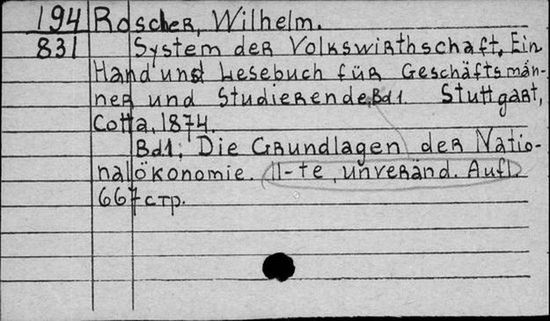 194 Roscher, Wilhelm.
831 System der Volkswirthschaft. Ein
Hand und Lesebuch für Geschäftsmän-
ner und Studierende. Bd 1. Stuttgart,
Cotta, 1874.
Bd1: Die Grundlagen der Natio-
nalökonomie. 11-te, unveränd. Aufl.
667 стр.